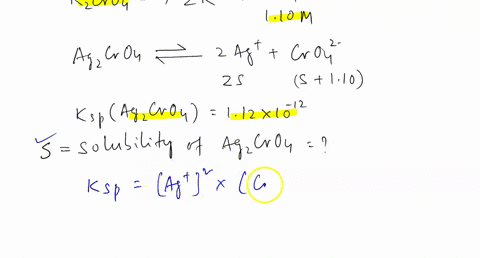 K₂CrO₄ → 2K
1.10 M
Ag₂CrO₄ ⇌ 2Ag⁺ + CrO₄²⁻
2S (S + 1.10)
Ksp (Ag₂CrO₄) = 1.12 × 10⁻¹²
S = solubility of Ag₂CrO₄ = ?
Ksp = [Ag⁺]² × (C